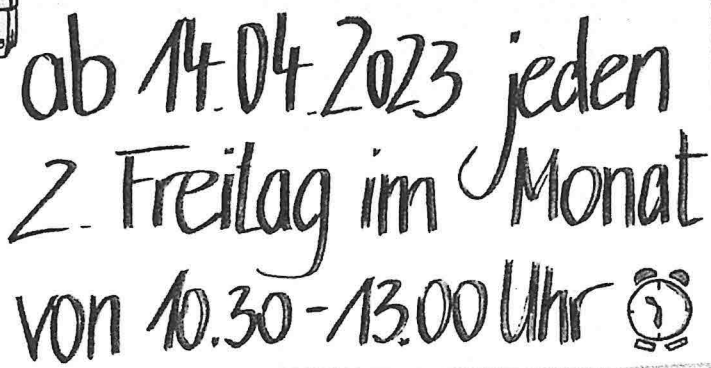 ab 14.04.2023 jeden
2. Freitag im Monat
von 10.30-13.00 Uhr